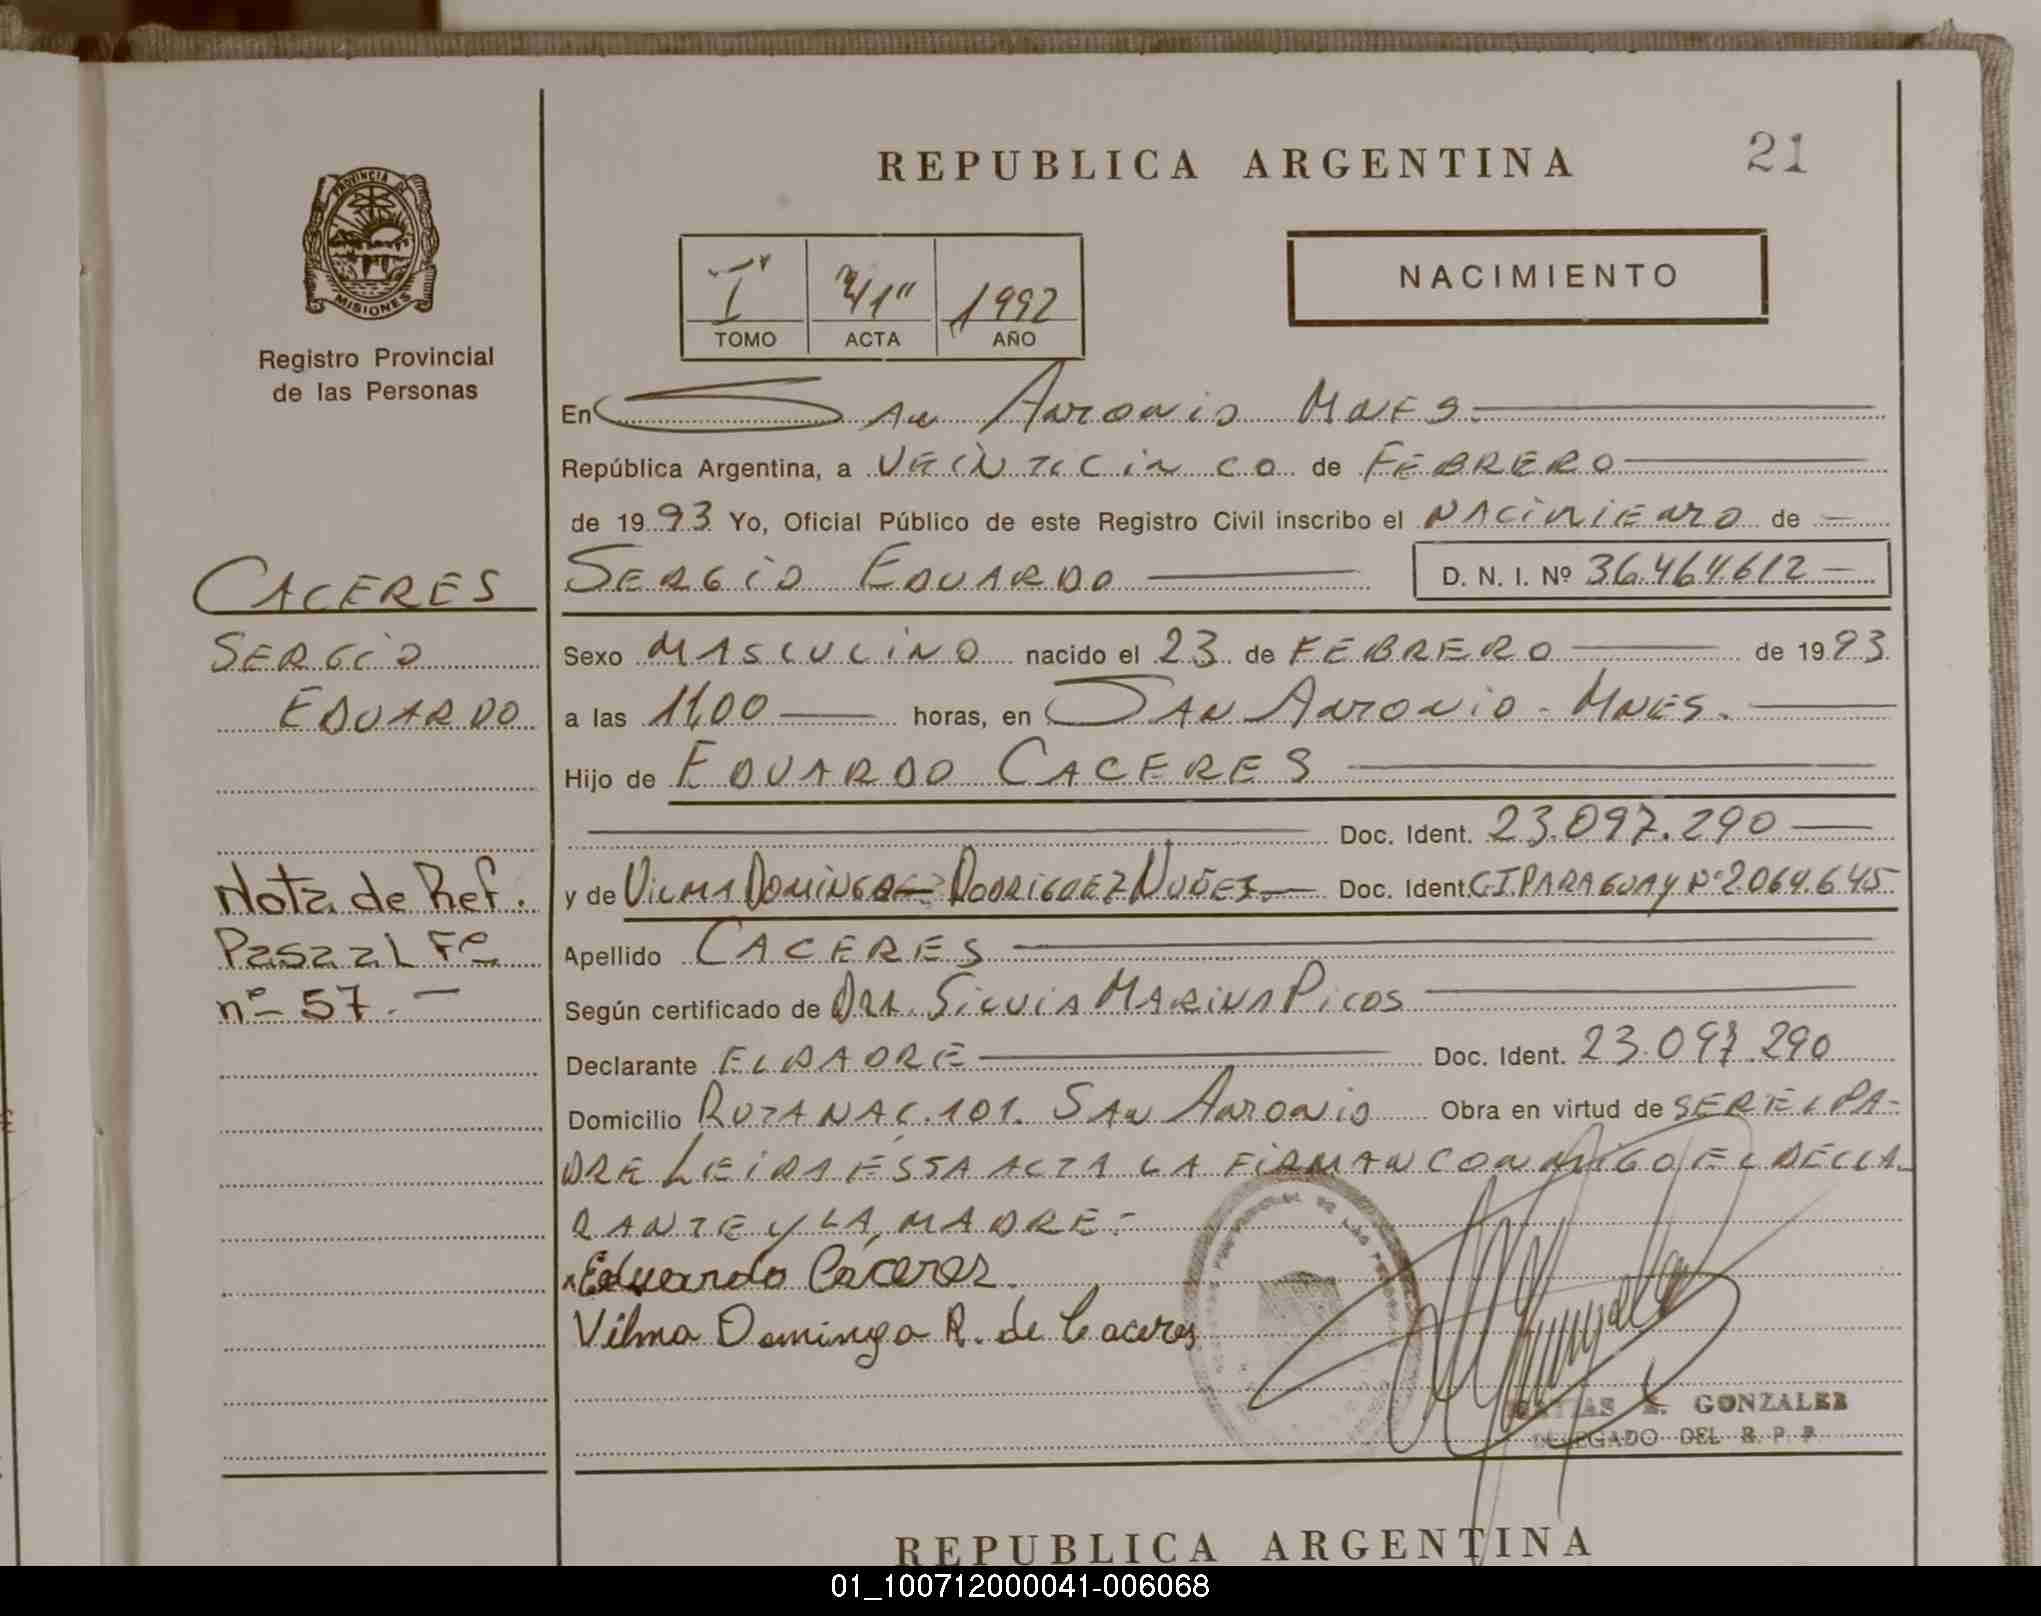 21
REPUBLICA ARGENTINA
PROVINCIA DE
MISIONES
Registro Provincial
de las Personas
NACIMIENTO
I 41 1992
TOMO ACTA AÑO
En San Antonio Mnes
República Argentina, a VEINTICINCO de FEBRERO
de 1993 Yo, Oficial Público de este Registro Civil inscribo el NACIMIENTO de
SERGIO EDUARDO D. N. I. Nº 36.464.612
CACERES
SERGIO
EDUARDO
Sexo MASCULINO nacido el 23 de FEBRERO de 1993
a las 11,00 horas, en SAN ANTONIO - MNES.
Hijo de EDUARDO CACERES
Doc. Ident. 23.097.290
y de VILMA DOMINGA RODRIGUEZ NUÑEZ Doc. Ident. C.I. PARAGUAY Nº 2.064.645
Nota de Ref.
Pasa al Fº
nº 57.-
Apellido CACERES
Según certificado de DRA. SILVIA MARINA PICOS
Declarante EL PADRE Doc. Ident. 23.097.290
Domicilio RUTA NAC. 101. SAN ANTONIO Obra en virtud de SER EL PA-
DRE LEIDA ÉSTA ACTA LA FIRMAN CONMIGO EL DECLA-
RANTE Y LA MADRE.-
Eduardo Cáceres
Vilma Dominga R. de Caceres
GONZALEZ
DELEGADO DEL R. P. P
REPUBLICA ARGENTINA
01_100712000041-006068